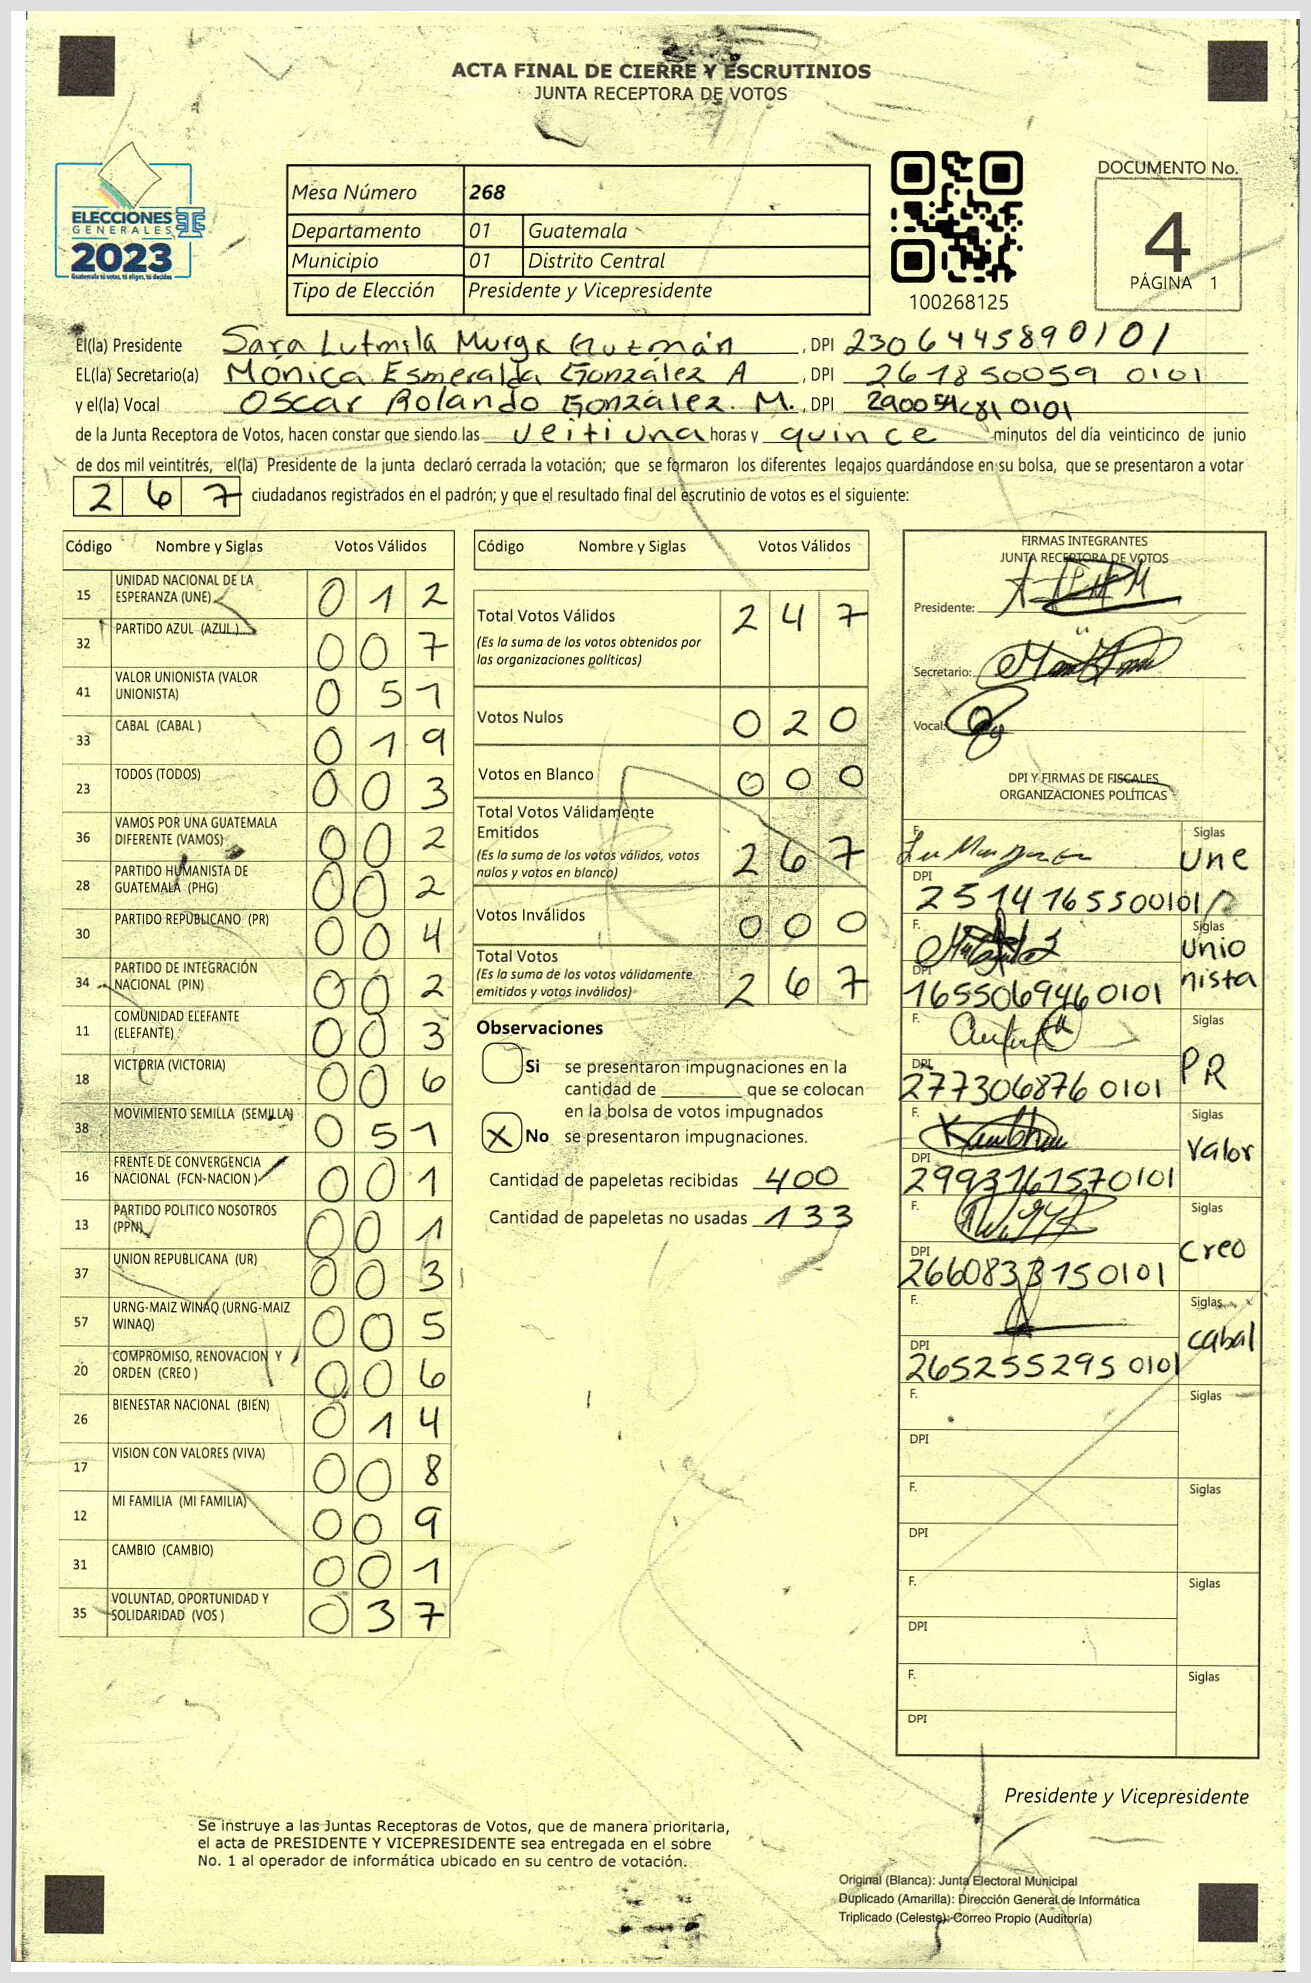 ACTA FINAL DE CIERRE Y ESCRUTINIOS
JUNTA RECEPTORA DE VOTOS
ELECCIONES
GENERALES
2023
Guatemala tú votas, tú eliges, tú decides
Mesa Número 268
Departamento 01 Guatemala
Municipio 01 Distrito Central
Tipo de Elección Presidente y Vicepresidente
100268125
DOCUMENTO No.
4
PÁGINA 1
El(la) Presidente Sara Lutmila Murga Guzmán, DPI 2306445890101
EL(la) Secretario(a) Mónica Esmeralda González A, DPI 261850059 0101
y el(la) Vocal Oscar Rolando González. M., DPI 0101
de la Junta Receptora de Votos, hacen constar que siendo las veitiuna horas y quince minutos del día veinticinco de junio
de dos mil veintitrés, el(la) Presidente de la junta declaró cerrada la votación; que se formaron los diferentes legajos guardándose en su bolsa, que se presentaron a votar
2 6 7 ciudadanos registrados en el padrón; y que el resultado final del escrutinio de votos es el siguiente:
Código Nombre y Siglas Votos Válidos
15 UNIDAD NACIONAL DE LA ESPERANZA (UNE) 0 1 2
32 PARTIDO AZUL (AZUL) 0 0 7
41 VALOR UNIONISTA (VALOR UNIONISTA) 0 5 1
33 CABAL (CABAL ) 0 1 9
23 TODOS (TODOS) 0 0 3
36 VAMOS POR UNA GUATEMALA DIFERENTE (VAMOS) 0 0 2
28 PARTIDO HUMANISTA DE GUATEMALA (PHG) 0 0 2
30 PARTIDO REPUBLICANO (PR) 0 0 4
34 PARTIDO DE INTEGRACIÓN NACIONAL (PIN) 0 0 2
11 COMUNIDAD ELEFANTE (ELEFANTE) 0 0 3
18 VICTORIA (VICTORIA) 0 0 6
38 MOVIMIENTO SEMILLA (SEMILLA) 0 5 1
16 FRENTE DE CONVERGENCIA NACIONAL (FCN-NACION ) 0 0 1
13 PARTIDO POLITICO NOSOTROS (PPN) 0 0 1
37 UNION REPUBLICANA (UR) 0 0 3
57 URNG-MAIZ WINAQ (URNG-MAIZ WINAQ) 0 0 5
20 COMPROMISO, RENOVACION Y ORDEN (CREO ) 0 0 6
26 BIENESTAR NACIONAL (BIEN) 0 1 4
17 VISION CON VALORES (VIVA) 0 0 8
12 MI FAMILIA (MI FAMILIA) 0 0 9
31 CAMBIO (CAMBIO) 0 0 1
35 VOLUNTAD, OPORTUNIDAD Y SOLIDARIDAD (VOS ) 0 3 7
Código Nombre y Siglas Votos Válidos
Total Votos Válidos 2 4 7
(Es la suma de los votos obtenidos por
las organizaciones políticas)
Votos Nulos 0 2 0
Votos en Blanco 0 0 0
Total Votos Válidamente
Emitidos 2 6 7
(Es la suma de los votos válidos, votos
nulos y votos en blanco)
Votos Inválidos 0 0 0
Total Votos 2 6 7
(Es la suma de los votos válidamente
emitidos y votos inválidos)
Observaciones
Si se presentaron impugnaciones en la
cantidad de ________ que se colocan
en la bolsa de votos impugnados
X No se presentaron impugnaciones.
Cantidad de papeletas recibidas 400
Cantidad de papeletas no usadas 133
FIRMAS INTEGRANTES
JUNTA RECEPTORA DE VOTOS
Presidente:
Secretario:
Vocal:
DPI Y FIRMAS DE FISCALES
ORGANIZACIONES POLÍTICAS
F. Siglas
une
DPI
2514165500101
F. Siglas
unio
nista
DPI
1655069460101
F. Siglas
PR
DPI
277306876 0101
F. Siglas
valor
DPI
2993161570101
F. Siglas
creo
DPI
2660833150101
F. Siglas
cabal
DPI
265255295 0101
F. Siglas
DPI
F. Siglas
DPI
F. Siglas
DPI
F. Siglas
DPI
Presidente y Vicepresidente
Se instruye a las Juntas Receptoras de Votos, que de manera prioritaria,
el acta de PRESIDENTE Y VICEPRESIDENTE sea entregada en el sobre
No. 1 al operador de informática ubicado en su centro de votación.
Original (Blanca): Junta Electoral Municipal
Duplicado (Amarilla): Dirección General de Informática
Triplicado (Celeste): Correo Propio (Auditoría)